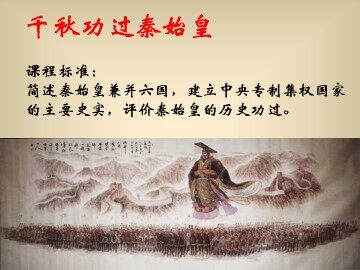 千秋功过秦始皇
课程标准：
简述秦始皇兼并六国，建立中央专制集权国家
的主要史实，评价秦始皇的历史功过。